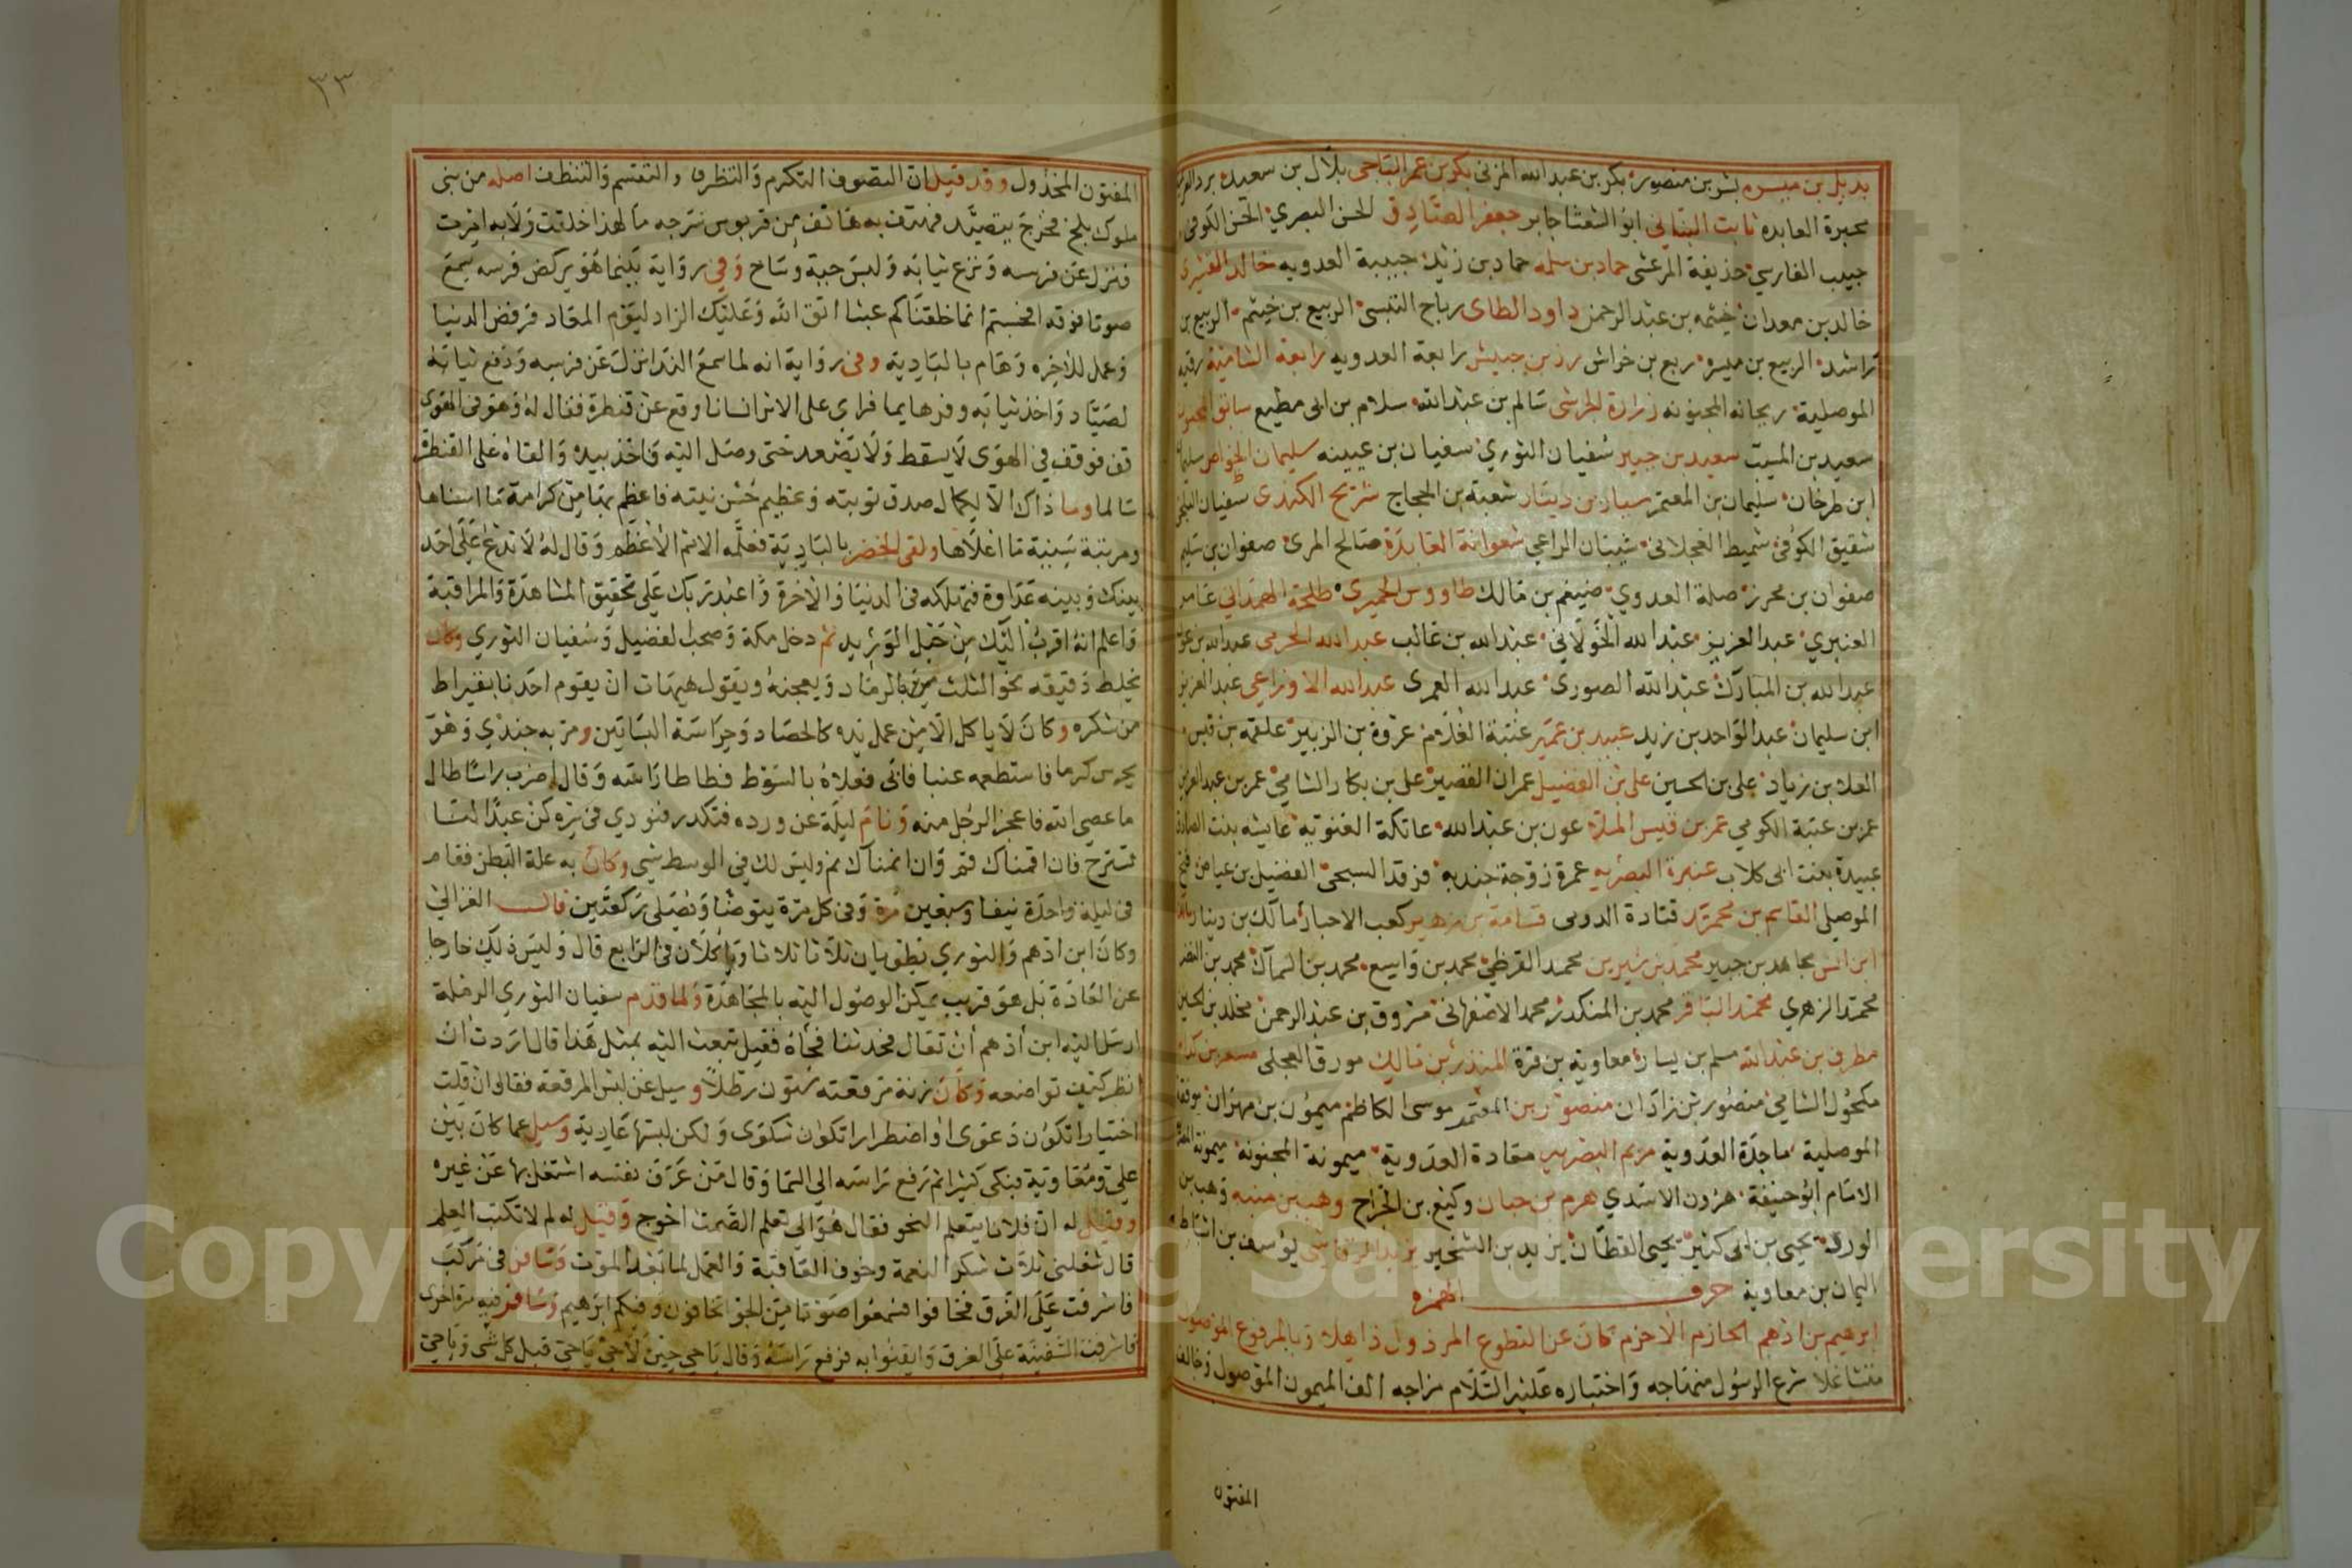 بديل بن ميسره بشر بن منصور بكر بن عبد الله المزني بكر بن عمر الناجي بلال بن سعيد برد
بحيرة العابده ثابت البناني ابو الشعثا جابر جعفر الصادق الحسن البصري الحسن الكوفي
حبيب الفارسي حذيفة المرعشي حماد بن سلمه حماد بن زيد حبيبة العدويه خالد القشيري
خالد بن معدان خيثمه بن عبد الرحمن داود الطاى رباح القيسي الربيع بن خيثم الربيع بن
راشد الربيع بن ميسره ربع بن خراش رزين حبيش رابعة العدويه رابعة الشامية رقيه
الموصلية ريحانه المجنونه زرارة الحرشى سالم بن عبد الله سلام بن ابى مطيع سابق
سعيد بن المسيب سعيد بن جبير سفيان الثوري سفيان بن عيينه سليمان الخواص
ابن طرخان سليمان بن المعتمر سيار بن دينار شعبة بن الحجاج شريح الكندى سفيان
شقيق الكوفى شميط العجلانى شيبان الراعي شعوانة العابدة صالح المرى صفوان بن سليم
صفوان بن محرز صلة العدوي ضيغم بن مالك طاووس الحميرى طلحة الهمداني عامر
العنبري عبد العزيز عبد الله الخولاني عبد الله بن غالب عبد الله الحرمى عبد الله بن عون
عبد الله بن المبارك عبد الله الصورى عبد الله العمرى عبد الله الاوزاعي عبد العزيز
ابن سليمان عبد الواحد بن زيد عبيد بن عمير عتبة الغلام عروة بن الزبير علقمه بن قيس
العلا بن زياد على بن الحسين على بن الفضيل عمران القصير على بن بكار الشامي عمر بن عبد العزيز
عمر بن عتبة الكوفي عمر بن قيس الملائ عون بن عبد الله عاتكة الغنويه عايشه بنت الصادق
عبيدة بنت ابى كلاب عنيزة البصريه عمرة زوجة حنديه فرقد السبخى الفضيل بن عياض فتح
الموصلى القاسم بن محمد قتادة الدوسى قسامة بن زهير كعب الاحبار مالك بن دينار
ابن انس مجاهد بن جبير محمد بن سيرين محمد القرظي محمد بن واسع محمد بن السماك محمد بن النضر
محمد الزهري محمد الباقر محمد بن المنكدر محمد الاصفهانى مسروق بن عبد الرحمن مخلد بن الحسين
مطرف بن عبد الله مسلم بن يسار معاوية بن قرة المنذر بن مالك مورق العجلى مسعر بن كدام
مكحول الشامي منصور بن زاذان منصور بن المعتمر موسى الكاظم ميمون بن مهران
الموصلية ماجدة العدوية مريم البصريه مقادة العدوية ميمونة المجنونة ميمونة
الامام ابو حنيفة هرون الاسدي هرم بن حبان وكيع بن الجراح وهب بن منبه وهب بن
الورد يحيى بن ابى كثير يحيى القطان يزيد بن الشخير يزيد الرقاشى يوسف بن اسباط
اليمان بن معاوية حرف الهمزه
ابرهيم بن ادهم الحازم الاحزم كان عن التطوع المرذول ذاهلا وبالمرفوع الموصوب
متشاغلا شرع الرسول منهاجه واختياره عليه السلام مزاجه الف الميمون الموصول وخالف
المفتون
٣٣
المفتون المخذول وقد قيل ان التصوف التكرم والتظرف والتقسم والتنظف اصله من بنى
ملوك بلخ فخرج يتصيد فهتف به هاتف من قربوس سرجه ما لهذا خلقت ولا به امرت
فنزل عن فرسه ونزع ثيابه ولبس جبة وساح وفي رواية بينما هو يركض فرسه سمع
صوتا فوقه افحسبتم انما خلقناكم عبثا اتق الله وعليك الزاد ليوم المعاد فرفض الدنيا
وعمل للاخره وهام بالبادية وفى رواية انه لما سمع الندا نزل عن فرسه ودفع ثيابه
لصياد واخذ ثيابه وفر هايما فراي على الاثر انسانا وقع عن قنطرة فقال له وهو فى الهوى
قف فوقف في الهوى لا يسقط ولا يصعد حتى وصل اليه فاخذ بيده والقاه على القنطرة
سالما وما ذاك الا لكمال صدق توبته وعظيم حسن نيته فاعظم بها من كرامة ما اسناها
ومرتبة سنية ما اعلاها ولقى الخضر بالبادية فعلمه الاسم الاعظم وقال له لا تدع على احد
بينك وبينه عداوة فتهلكه فى الدنيا والاخرة واعبد ربك على تحقيق المشاهدة والمراقبة
واعلم انه اقرب اليك من حبل الوريد ثم دخل مكة وصحب الفضيل وسفيان الثوري وكان
يخلط دقيقه نحو الثلث من بالرماد ويعجنه ويقول هيهات ان يقوم احدنا بقيراط
من شكره وكان لا ياكل الا من عمل يده كالحصاد وحراسة البساتين ومر به جندي وهو
يحرس كرما فاستطعمه عنبا فابى فعلاه بالسوط فطاطا راسه وقال اضرب راسا طال
ما عصى الله فاعجز الرجل منه ونام ليلة عن ورده فتكدر فنودي فى سره كن عبدا لنا
تسترح فان اقمناك قم وان انمناك نم وليس لك في الوسط شي وكان به علة البطن فقام
فى ليلة واحدة نيفا وسبعين مرة وفى كل مرة يتوضا ويصلى ركعتين قال الغزالي
وكان ابن ادهم والثوري يطويان ثلاثا ثلاثا وياكلان فى الرابع قال وليس ذلك خارجا
عن العادة بل هو قريب يمكن الوصول اليه بالمجاهدة ولما قدم سفيان الثوري الرملة
ارسل اليه ابن أدهم أن تعال فحدثنا فجاه فقيل تبعث اليه بمثل هذا قال اردت ان
انظر كيف تواضعه وكان زنة مرقعته ستون رطلا وسيل عن لبس المرقعة فقال ان قلت
اختيارا تكون دعوى او اضطرارا تكون شكوى ولكن لبستها عارية وسيل عما كان بين
علي ومعاوية فبكى كثيرا ثم رفع راسه الى السما وقال من عرف نفسه اشتغل بها عن غيره
وقيل له ان فلانا يتعلم النحو فقال هو الى تعلم الصمت احوج وقيل له لم لا تكتب العلم
قال شغلنى ثلاث شكر النعمة وخوف العاقبة والعمل لما بعد الموت وسافر فى مركب
فاشرفت على الغرق فخافوا فسمعوا صوتا من الجو تخافون وفيكم ابرهيم وسافر فيه مرة اخرى
فاشرفت السفينة على الغرق وايقنوا به فرفع راسه وقال يا حي حين لا حي يا حي قبل كل شى ويا حي
Copyright © King Saud University